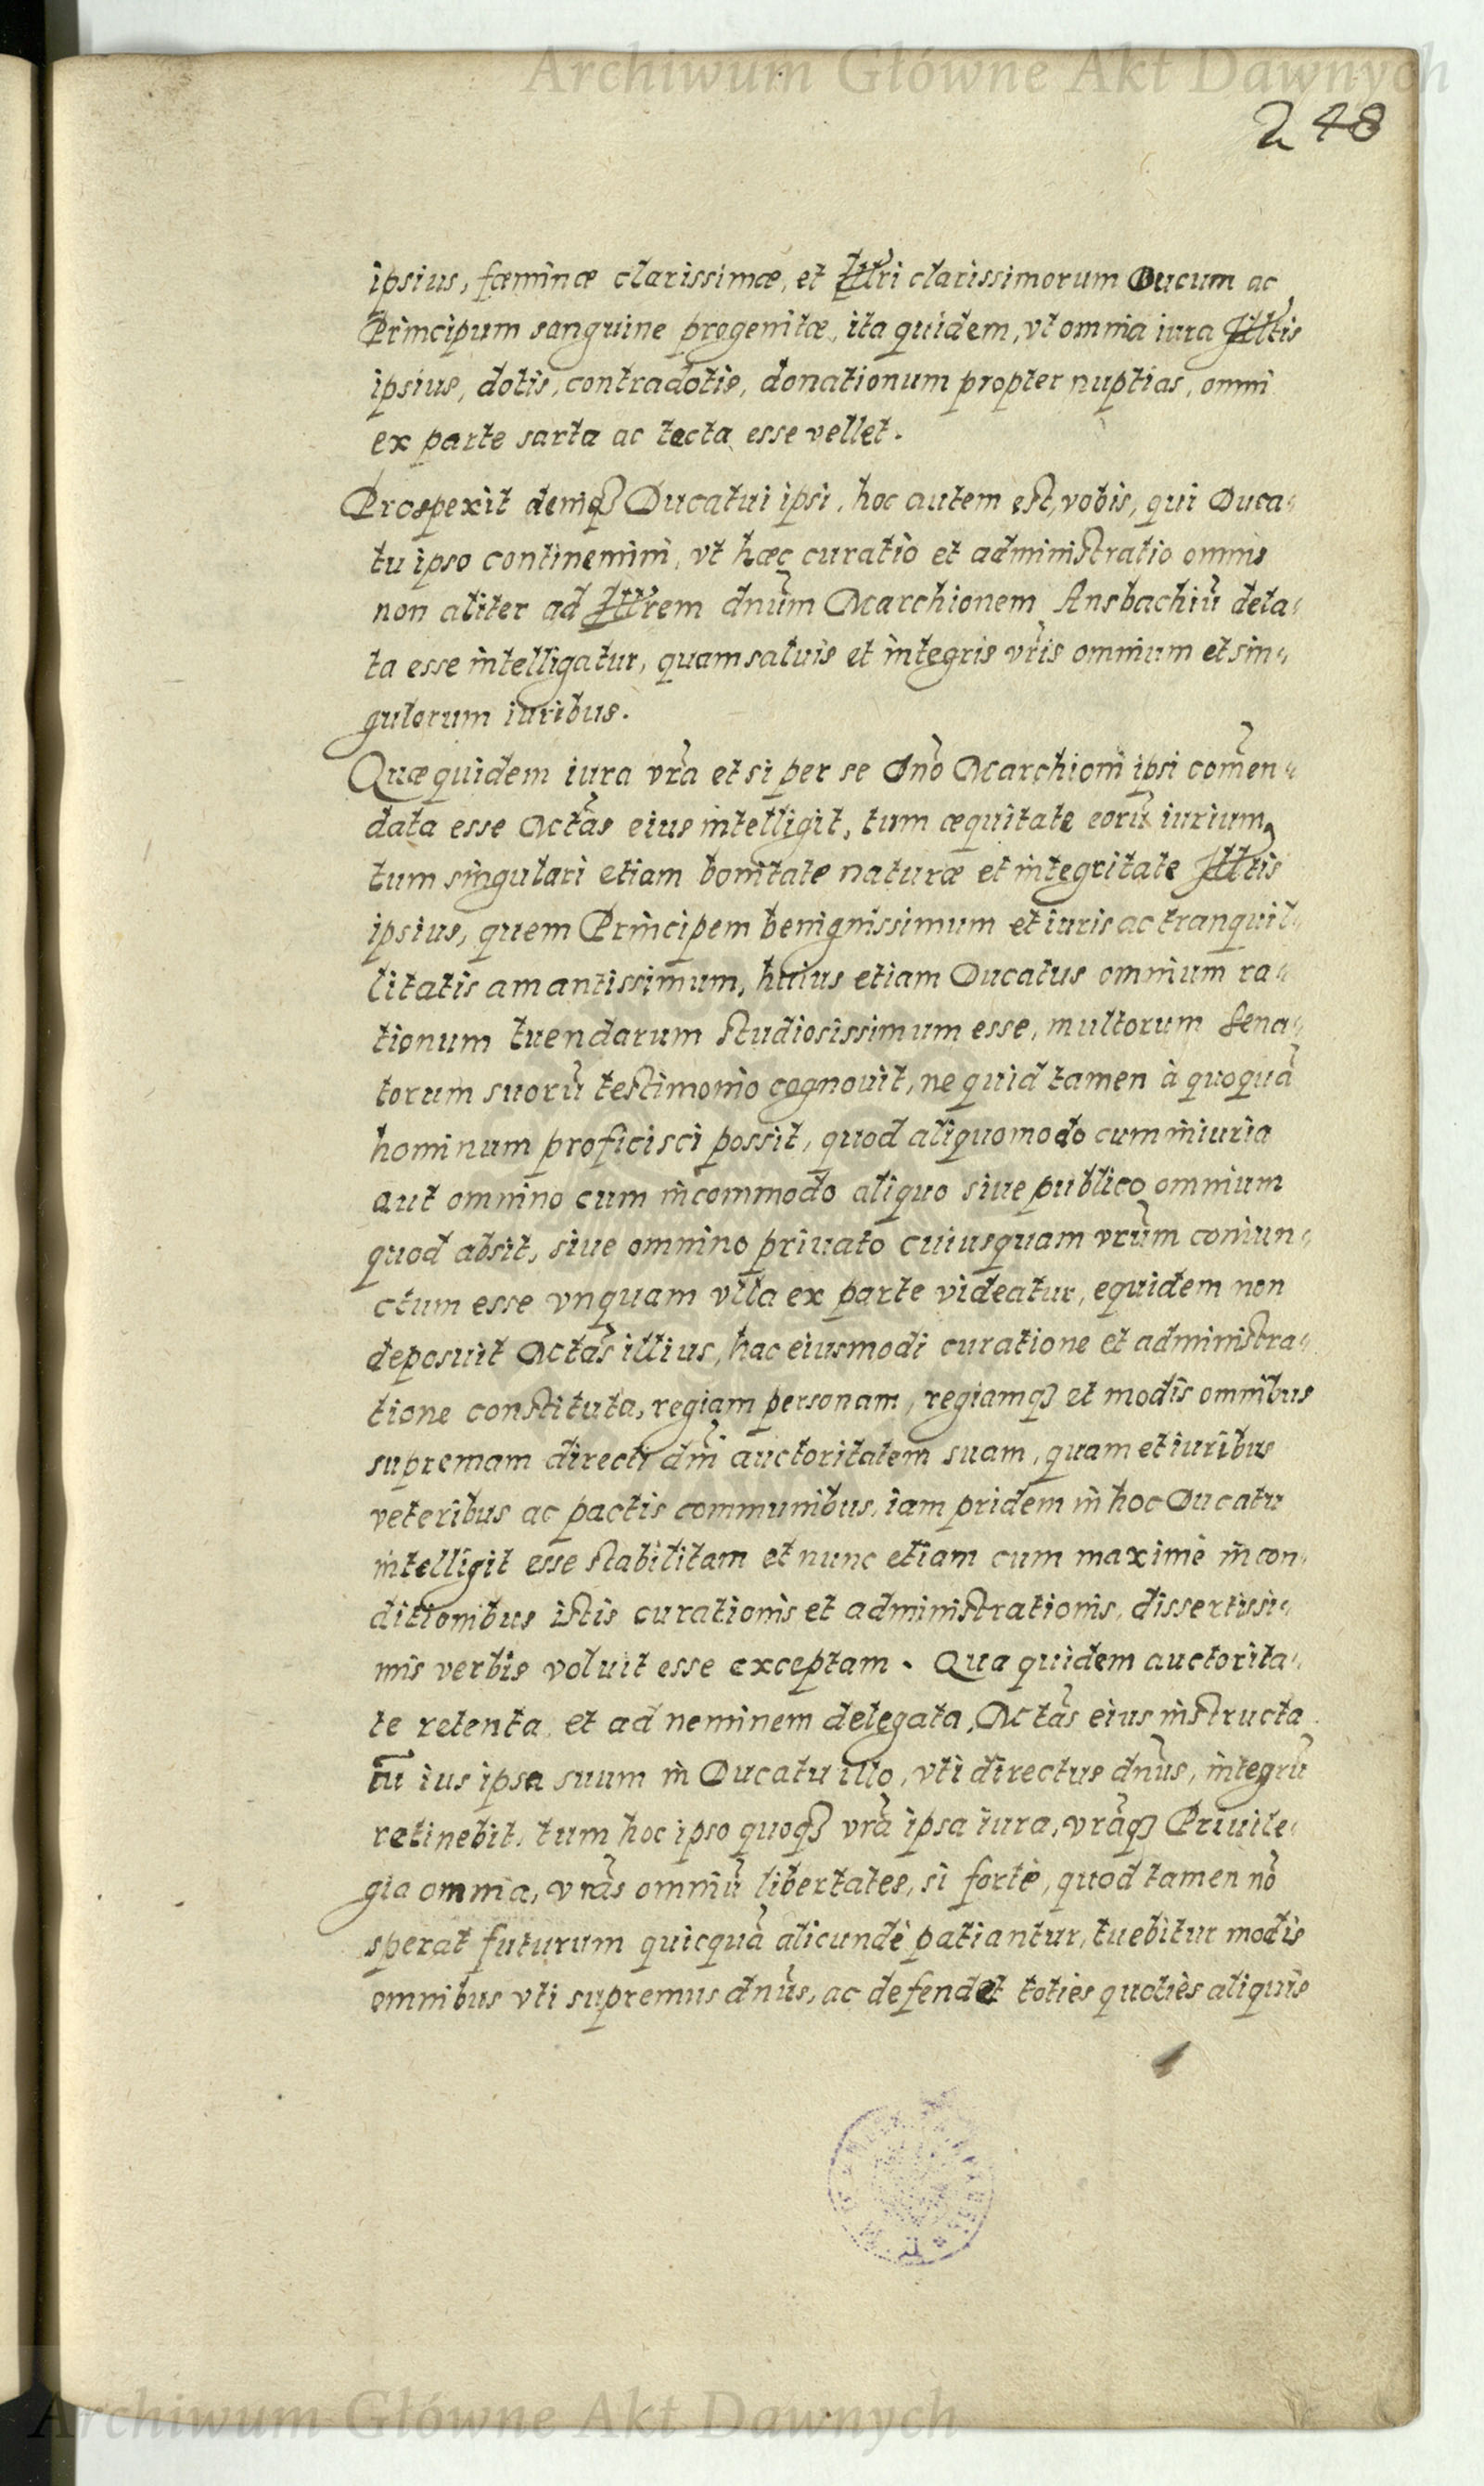 Archiwum Główne Akt Dawnych
248
ipsius, fœminæ clarissimæ, et Illri clarissimorum Ducum ac
Principum sanguine progenitæ, ita quidem, vt omnia iura Illtis
ipsius, dotis, contradotis, donationum propter nuptias, omni
ex parte sarta ac tecta esse vellet.
Prospexit deniq₃ Ducatui ipsi, hoc autem est, vobis, qui Duca-
tu ipso continemini, vt hæc curatio et administratio omnis
non aliter ad Illrem dnum Marchionem Ansbachiū dela-
ta esse intelligatur, quam saluis et integris vris omnium et sin-
gulorum iuribus.
Quæ quidem iura vra etsi per se Dno Marchioni ipsi com̄en-
data esse Mctas eius intelligit, tum æquitate eorū iurium,
tum singulari etiam bonitate naturæ et integritate Illtis
ipsius, quem Principem benignissimum et iuris ac tranquil-
litatis amantissimum, huius etiam Ducatus omnium ra-
tionum tuendarum studiosissimum esse, multorum Sena-
torum suorū testimonio cognouit, ne quid tamen à quoquā
hominum proficisci possit, quod aliquomodo cum iniuria
aut omnino cum incommodo aliquo siue publico omnium
quod absit, siue omnino priuato cuiusquam vrum coniun-
ctum esse vnquam vlla ex parte videatur, equidem non
deposuit Mctas illius, hac eiusmodi curatione et administra-
tione constituta, regiam personam, regiamq₃ et modis omnibus
supremam directi dni auctoritatem suam, quam et iuribus
veteribus ac pactis communibus, iam pridem in hoc Ducatu
intelligit esse stabilitam et nunc etiam cum maximè in con-
ditionibus istis curationis et administrationis, dissertissi-
mis verbis voluit esse exceptam. Qua quidem auctorita-
te retenta et ad neminem delegata, Mctas eius instructa
tū ius ipsa suum in Ducatu illo, vti directus dnus, integrū
retinebit, tum hoc ipso quoq₃ vra ipsa iura, vraq₃ Priuile-
gia omnia, vras omniū libertates, si fortè, quod tamen nō
sperat futurum quicquā alicundè patiantur, tuebitur modis
omnibus vti supremus dnus, ac defendet toties quoties aliquis
Archiwum Główne Akt Dawnych